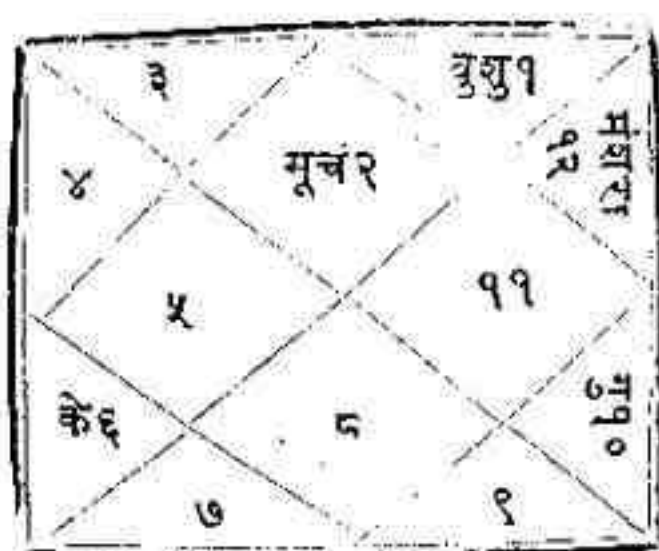 ३
बुशु१
मंशरा
१२
सूचं२
४
५
११
के६
८
गु१०
७
९